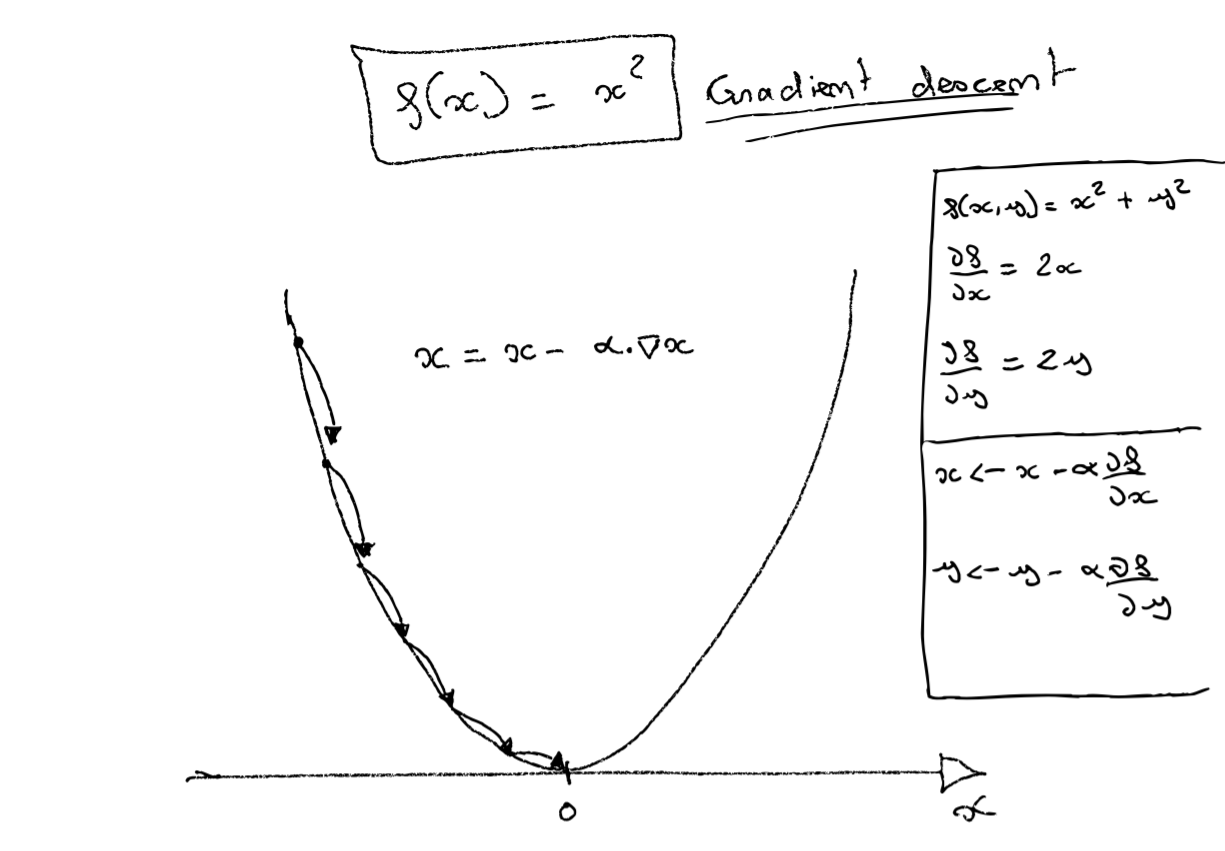 f(x) = x² Gradient descent
f(x,y) = x² + y²
∂f/∂x = 2x
∂f/∂y = 2y
x = x - α.∇x
x <- x - α ∂f/∂x
y <- y - α ∂f/∂y
0
x